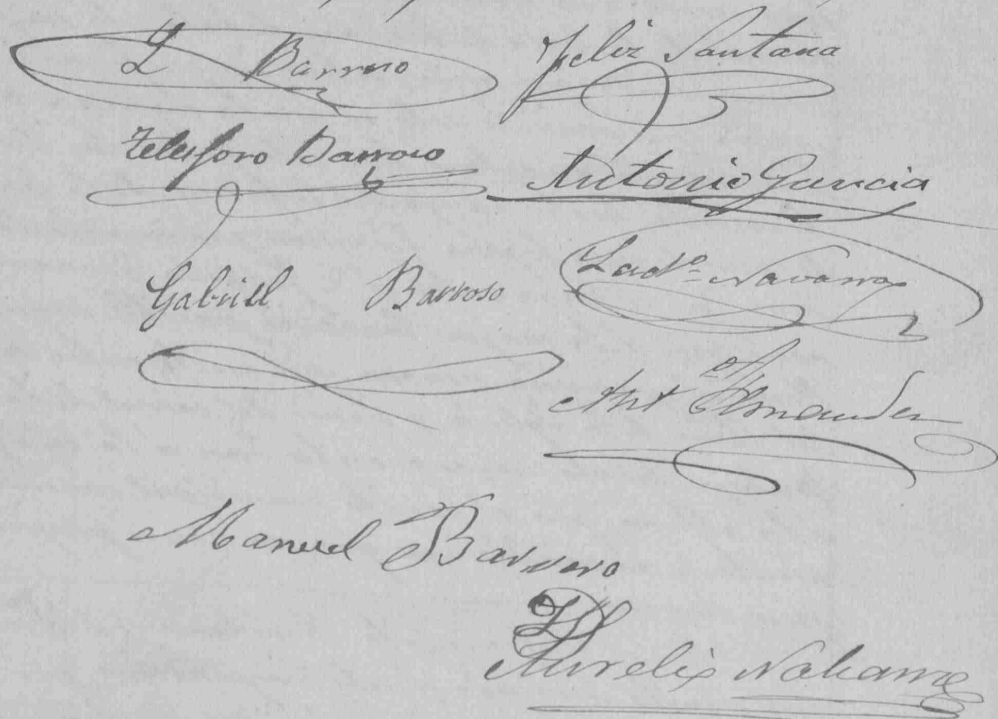 L Barrero
Feliz Santana
Telesforo Barroso
Antonio Garcia
Gabriell Barroso
Ladº Navarro
Antº
Manuel Barrero
Aurelio Nabarro